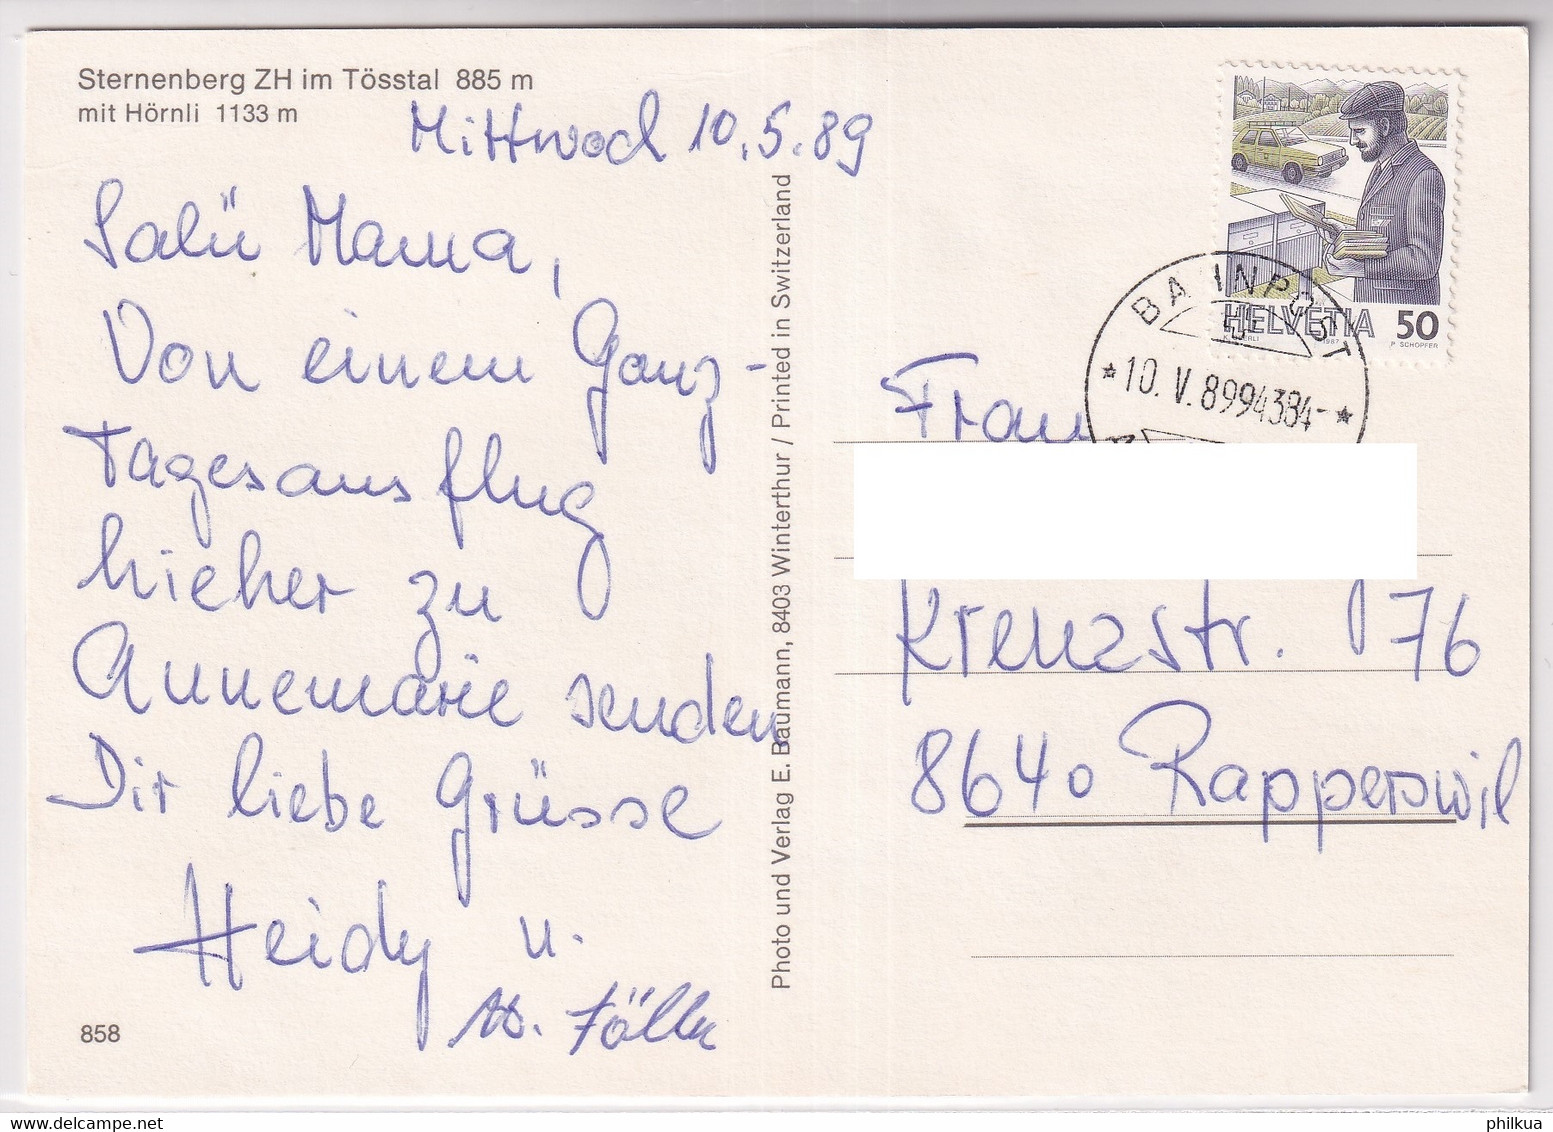 Sternenberg ZH im Tösstal 885 m
mit Hörnli 1133 m
Mittwoch 10.5.89
Salü Mama,
Von einem Ganz-
tagesausflug
hieher zu
Annemarie senden
Dir liebe Grüsse
Heidy u.
858
Photo und Verlag E. Baumann, 8403 Winterthur / Printed in Switzerland
HELVETIA 50
1987
P. SCHOPFER
BAHNPOST
*10.V.8994384-*
Frau
Kreuzstr. 76
8640 Rapperswil
philkua